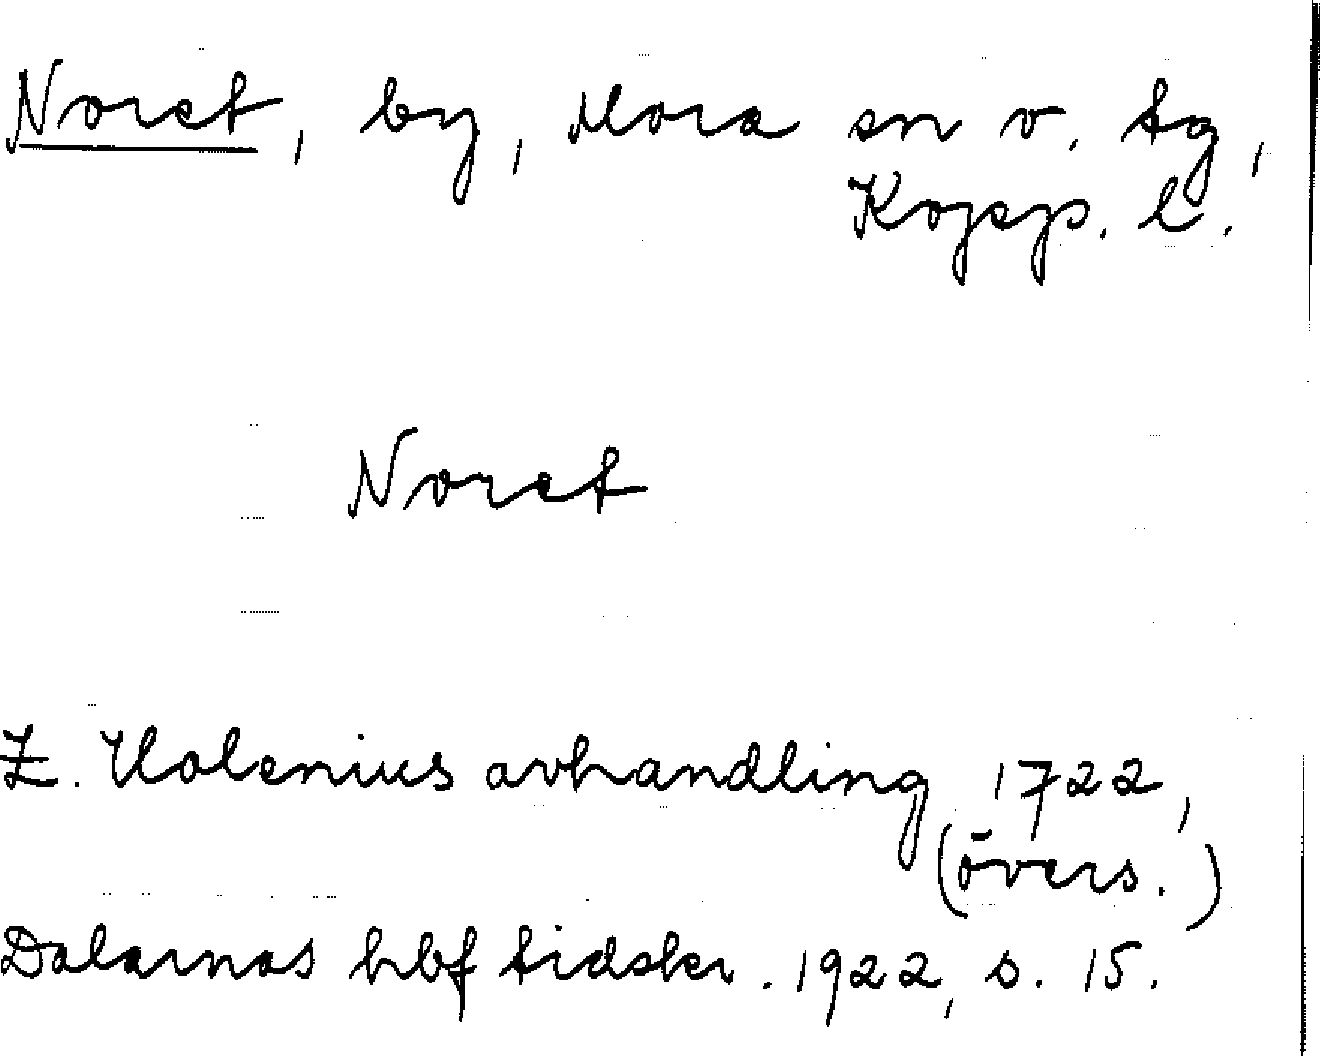 Noret, by, Mora sn v. tg,
Kopp. l.
Noret
Z. Holenius avhandling 1722,
(övers.)
Dalarnas hbf tidskr. 1922, s. 15.